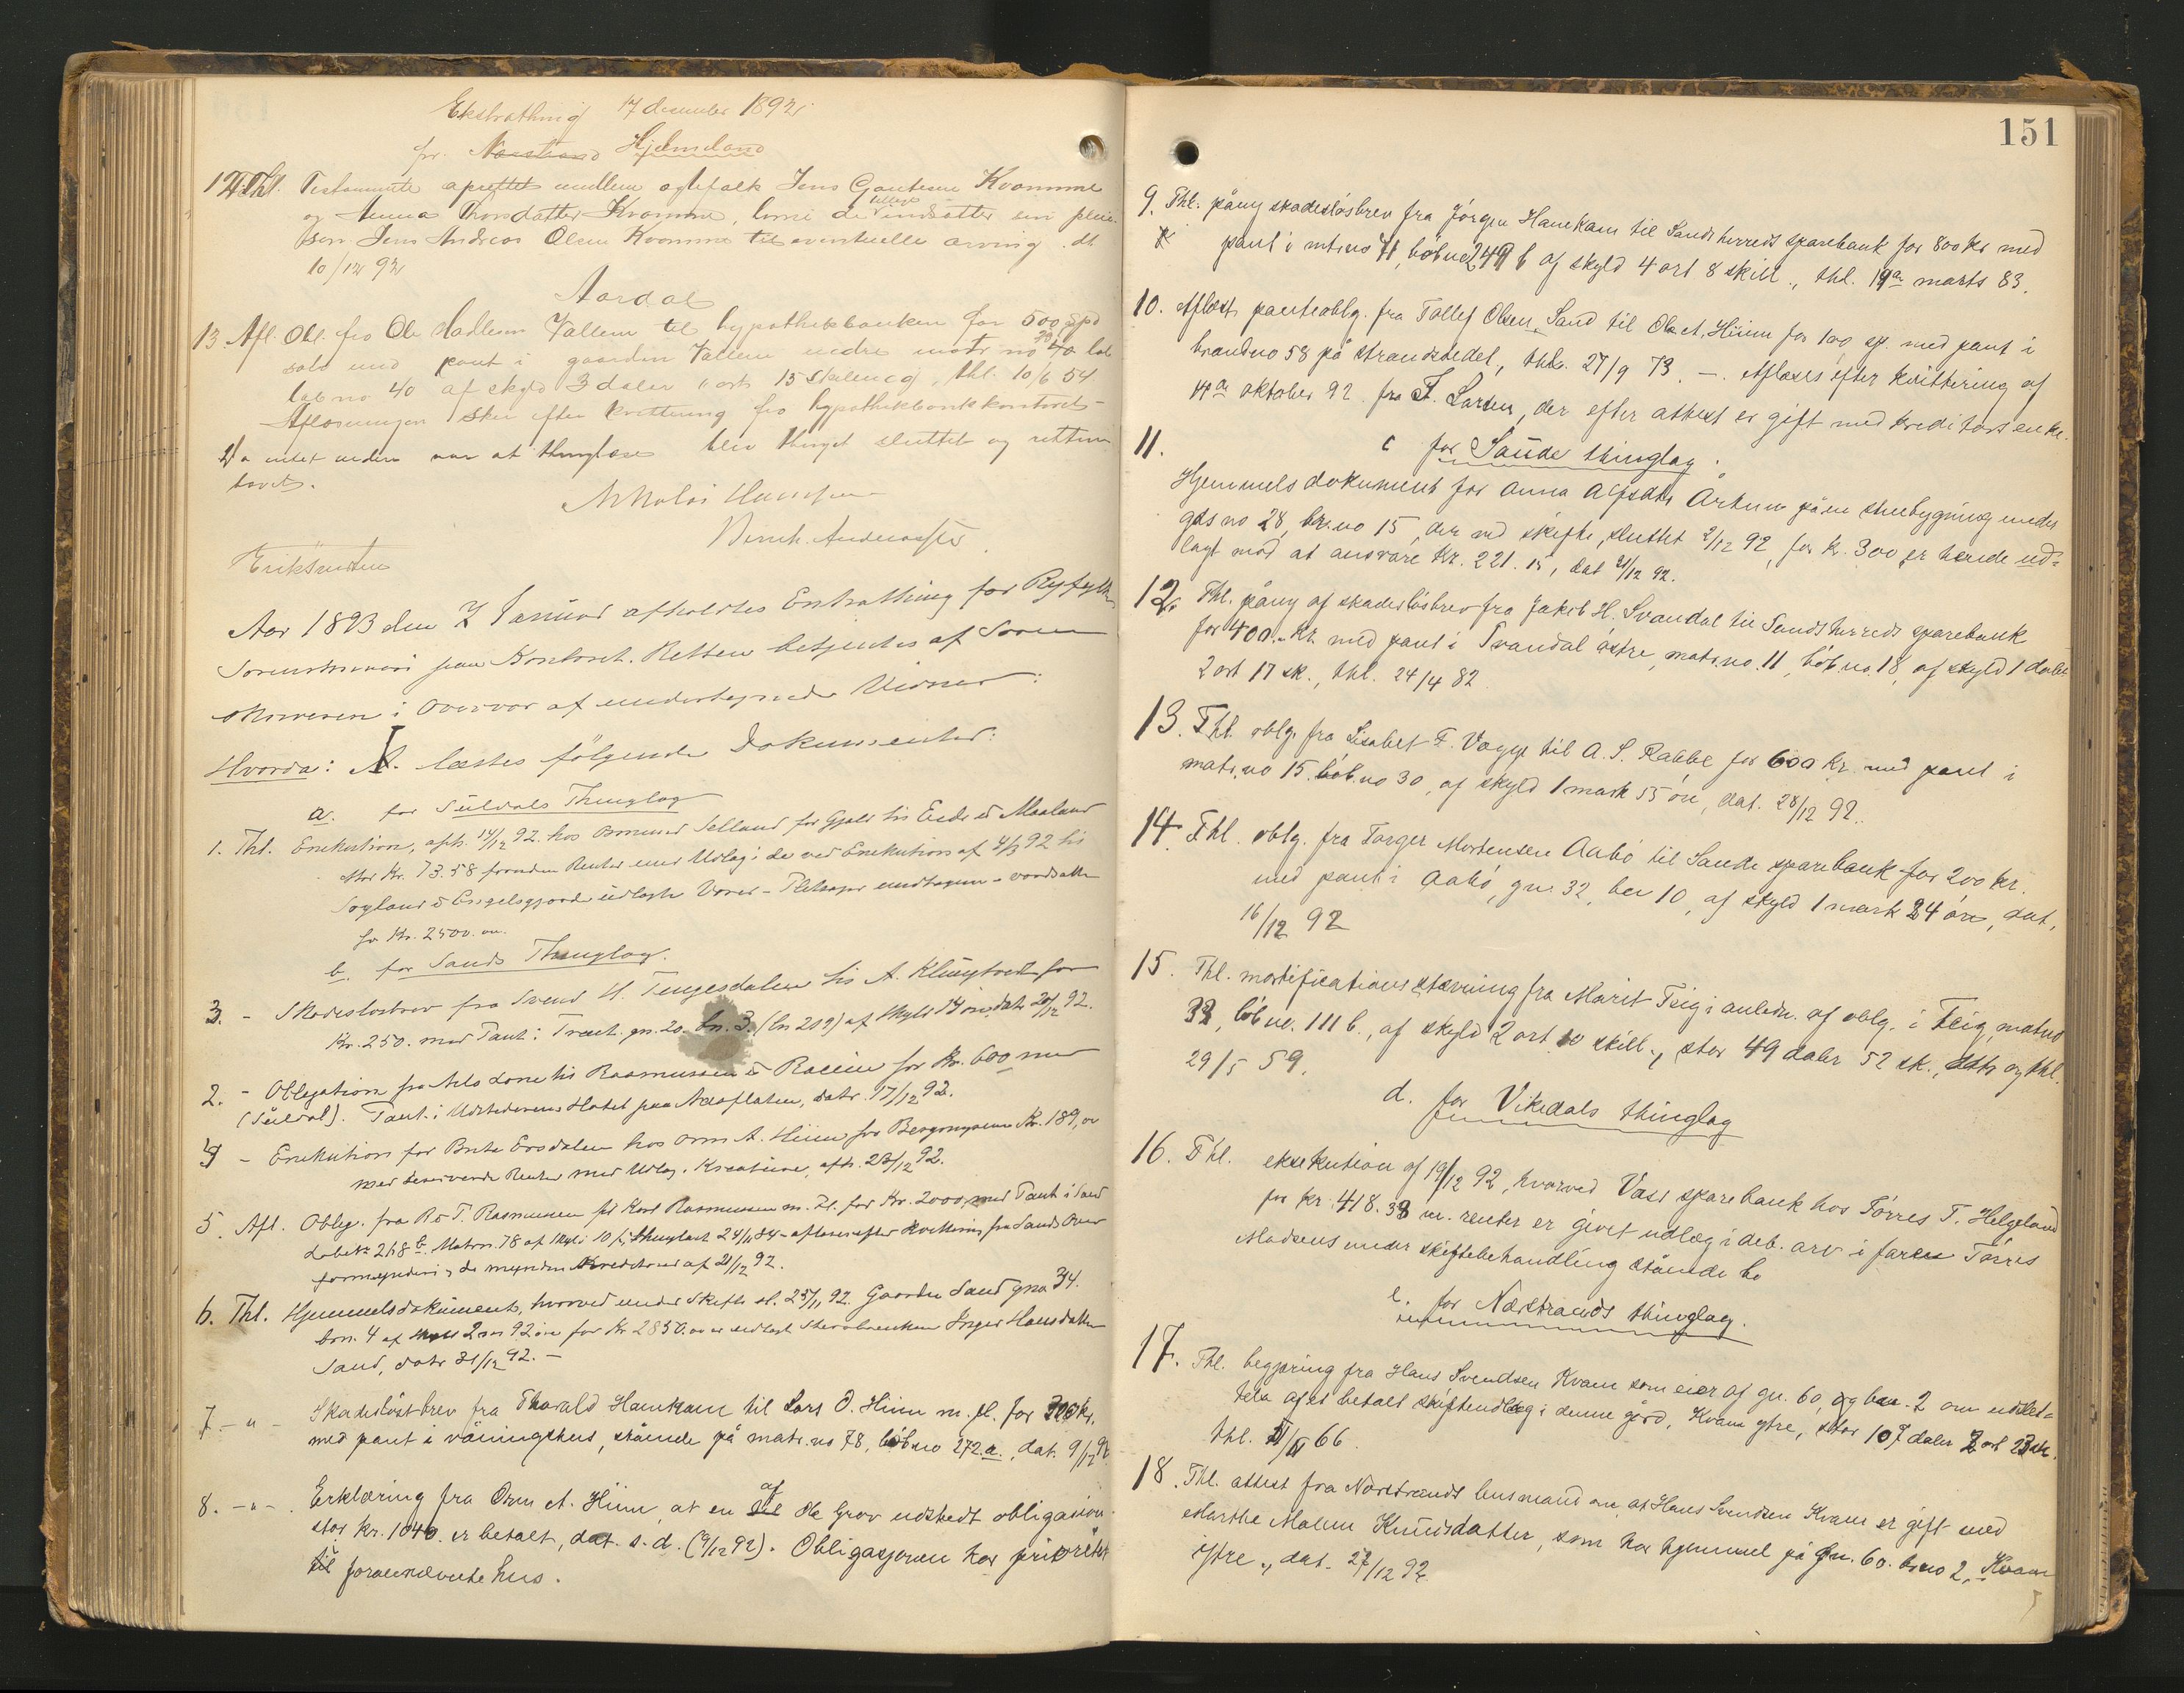 Ekstrathing 17 december 1892
for Nærstrand Hjelmeland
12. Thl. Testamente oprettet mellem ægtefolk Jens Gautesen Kvamme
og Anna Thorsdatter Kvamme, hvori de tillige indsætter sin pleie-
søn Jens Andreas Olsen Kvamme til eventuelle arving. dt
10/12 92
Aardal
13. Afl. Obl. fra Ole Hadlesen Valleim til hypothekbanken for 500 Spd
sølv med pant i gaarden Valleim nedre matr no 20 40 løb
løb no 40 af skyld 3 daler ort 15 skilling, thl. 10/6 54.
Aflæsningen sker efter kvittering fra hypothekbankkontoret
Da intet videre var at thinglæse blev thinget sluttet og retten
hævet.
Nikolai Hansen
Bernh. Andreassen
Eriksen
Aar 1893 den 7 Januar afholdtes Extrathing for Ryfylke
Sorenskriveri paa Kontoret. Retten betjentes af Soren-
skriveren i Overvær af undertegnede Vidner:
Hvorda: A. læstes følgende Dokumenter:
a. for Suldals Thinglag
1. Thl. Exekution, afh. 14/12 92. hos Selland for Gjæld til Maaland
stor Kr. 73.58 foruden Renter med Udlæg i de ved Exekution af 4/3 92 til
Søyland & Engelsgjoord udlagte Varer
for Kr. 2500.00.
b. for Sands Thinglag.
3. - Skadesløsbrev fra Svend H. Tengesdalen til A. Klungtvedt for
Kr. 250. med Pant i gn. 20. bn. 3. (ln 209) af Skyld 14 øre, dat. 20/12 92.
2. - Obligation fra Nels Lone til Rasmussen & Racine for Kr. 600 med
(Suldal). Pant i Udstederens Hotel paa Næsflaten, datr. 17/12 92.
4 - Exekution for Brite Evsdalen hos Orm A. Hiim fra Kr. 189,00
med Renter med Udlæg i Kreature, afh. 23/12 92.
5. Afl. Oblig. fra R. T. Rasmussen til Karl Rasmussen m. Fl. for Kr. 2000, med Pant i Sand
Løbetr 268 b. Matrn. 78 af Skyld 10 thinglæst 24/11 84 - aflæses efter Kvittering fra Sands Over
formynderi, de myndige Kreditorer af 21/12 92.
6. Thl. Hjemmelsdokument, hvorved under Skifte sl. 25/11 92. Gaarden Sand gno 34.
brn. 4 af Skyld 2 m 92 øre for Kr 2850.00 er udlagt Inger Hansdatter
Sand, datr 31/12 92. -
7 - " - Skadesløsbrev fra Tharald Hanekam til Lars O. Hiim m. fl. for 300 kr.
med pant i våningshus, stående på matr. no 78, løb no 272.a., dat. 9/12 92
8. - " - Erklæring fra Orm A. Hiim, at en af Ole Grov udstedt obligasion
stor kr. 1040. er betalt, dat. s. d. (9/12 92). Obligasjonen har prioritet
til forannævnte hus.
151
9. Thl. påny skadesløsbrev fra Jørgen Hanekam til Sands herreds sparebank for 800 kr med
pant i mtr no 71, løb no 249 b af skyld 4 ort 8 skill., thl. 19de marts 83.
10. Aflæst panteoblg. fra Tollef Olsen, Sand til Ole A. Hiim for 100 sp. med pant i
brandno 58 på strandstedet, thl. 27/9 73. -. Aflæses efter kvittering af
11te oktober 92 fra T. Larsen, der efter attest er gift med kreditors enke.
11. c for Saude thinglag.
Hjemmelsdokument for Anna Alfsdtr Århus på en stuebygning under
gds no 28, br. no 15, der ved skifte, sluttet 2/12 92, for k. 300 er hende ud-
lagt mod at ansvare kr. 221.15, dat 21/12 92.
12. Thl. påny af skadesløsbrev fra Jakob H. Svandal til Sands herreds sparebank
for 400.- kr. med pant i Svandal østre, matr. no. 11, løb. no. 18, af skyld 1 daler
2 ort 17 sk., thl. 24/4 82
13. Thl. oblg. fra Lisabet F. Vægge til A. S. Rabbe for 600 kr. med pant i
matr. no 15. løb. no 30, af skyld 1 mark 55 øre, dat. 28/12 92.
14. Thl. oblg. fra Torger Mortensen Aabø til Saude sparebank for 200 kr.
med pant i Aabø, gn. 32, bn 10, af skyld 1 mark 24 øre, dat.
16/12 92
15. Thl. mortifications stævning fra Marit Teig i anledn. af oblg. i Teig, matr no
33, løb no. 111 b., af skyld 2 ort 10 skill., stor 49 daler 52 sk., dat og thl.
29/5 59.
d. for Vikedals thinglag
16. Thl. eksekution af 19/12 92, hvorved Vass sparebank hos Tørres T. Helgeland
for kr. 418.38 m. renter er givet udlæg i deb. arv i faren Tørres
Madsens under skiftebehandling stående bo
e. for Nærstrands thinglag.
17. Thl. begjæring fra Hans Svendsen Kvam som eier af gn. 60, og bn. 2 om udslet-
telse af et betalt skifteudlæg i denne gård, Kvam ytre, stor 107 daler 2 ort 23 sk.
thl. 66.
18. Thl. attest fra Nærstrands lensmand om, at Hans Svendsen Kvam er gift med
Marthe Malene Knudsdatter, som har hjemmel på Gn. 60. br. no 2, Kvam
ytre., dat. 27/12 92